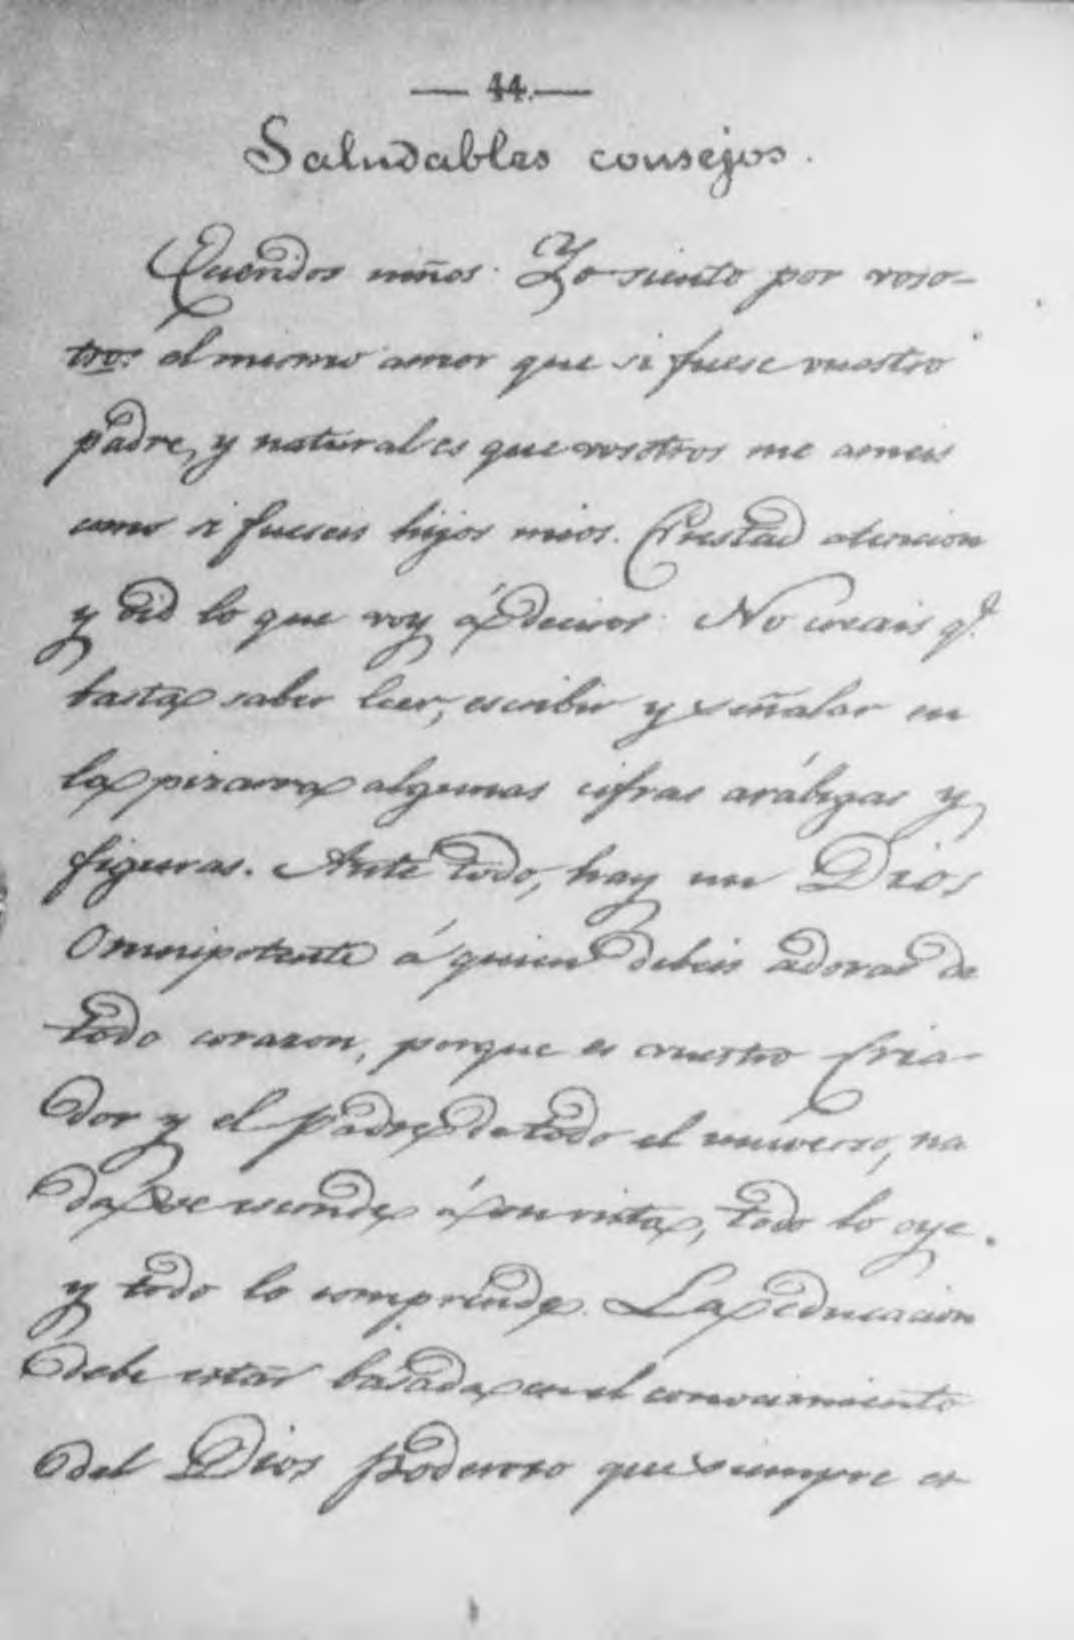 — 44. —
Saludables consejos.
Queridos niños. Yo siento por voso-
tros el mismo amor que si fuese vuestro
padre, y natural es que vosotros me ameis
como si fueseis hijos mios. Prestad atencion
y oid lo que voy á deciros. No creais q.e
basta saber leer, escribir y señalar en
la pizarra algunas cifras arábigas y
figuras. Ante todo, hay un Dios
Omnipotente á quien debeis adorar de
todo corazon, porque es vuestro Cria-
dor y el Padre de todo el universo, na
da se esconde á su vista, todo lo oye
y todo lo comprende. La educacion
debe estar basada en el conocimiento
del Dios poderoso que siempre es-